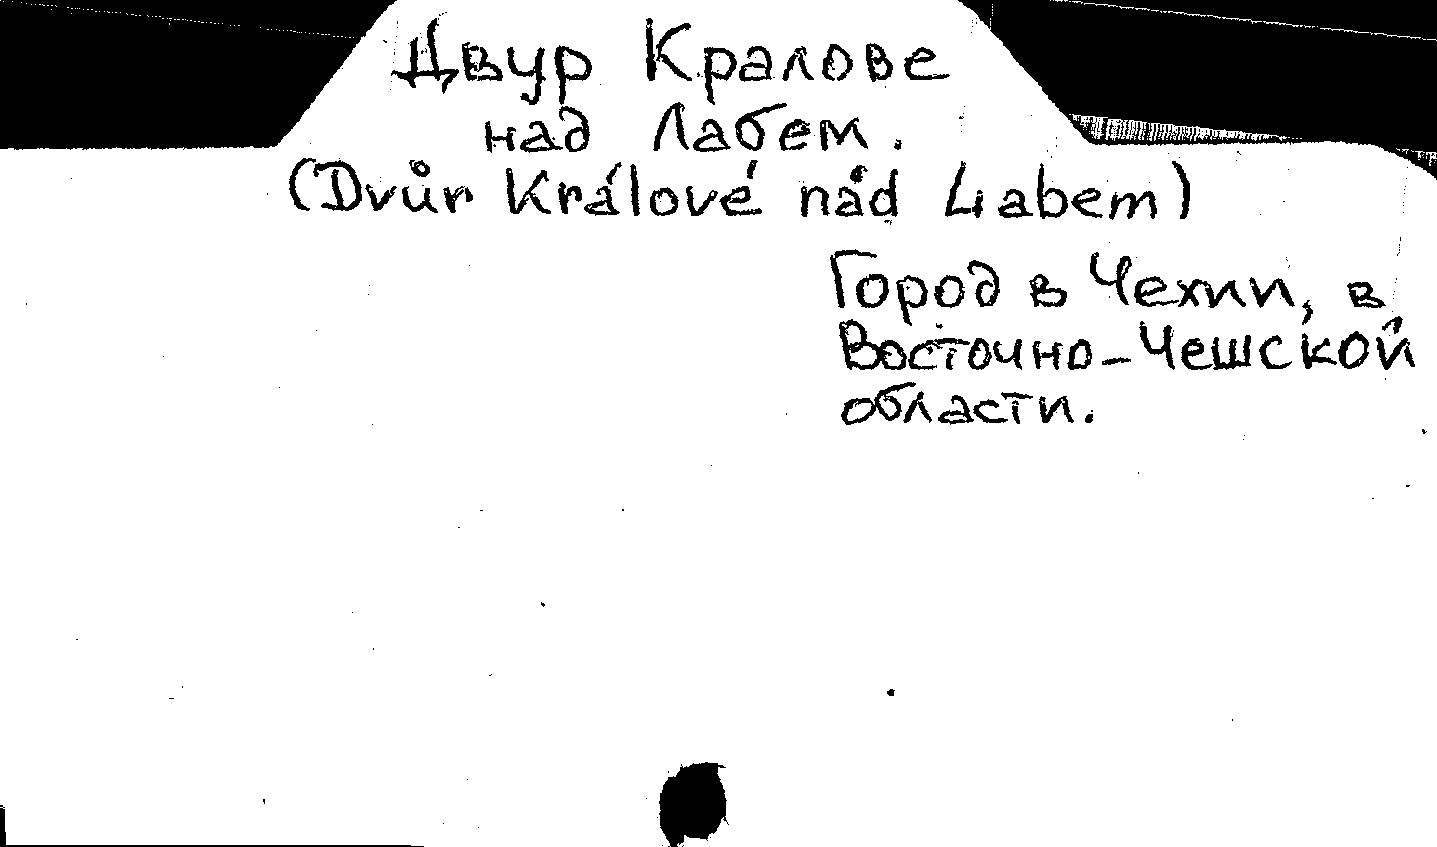 Двур Кралове
над Лабем.
(Dvůr Králové nád Labem)
Город в Чехии, в
Восточно-Чешской
области.